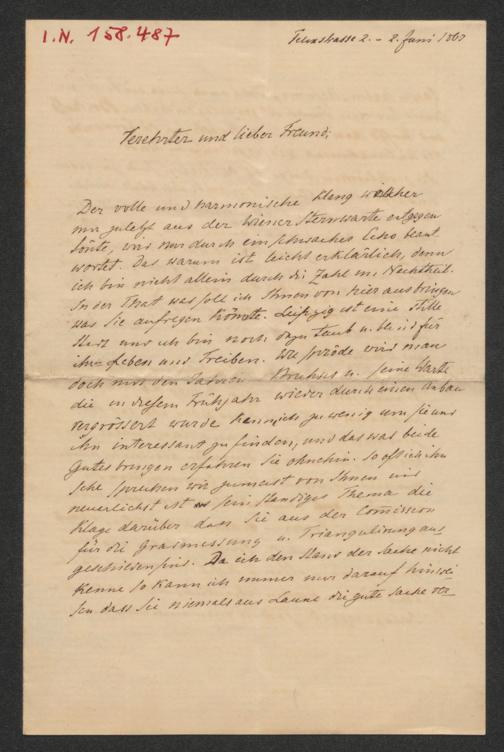 I.N. 158.487
2. Juni 186
Verehrter und lieber Freund,
Der volle und harmonische Klang welcher
mir zuletzt aus der Wiener Sternwarte entgegen
tönte, wird nur durch ein schwaches Echo beant
wortet. Das warum ist leicht erklärlich, denn
ich bin nicht allein durch die Zahl im Nachtheil.
In der That was soll ich Ihnen von hier aus bringen
was Sie aufregen könnte. Leipzig ist eine stille
Stadt und ich bin noch dazu taub u. blind für
ihr Leben und Treiben. Wie spröde wird man
doch mit den Jahren Bruhns u. seine Warte
die in diesem Frühjahr wieder durch einen Anbau
vergrössert wurde kenn ich zu wenig um sie und
ihn interessant zu finden, und das was beide
Gutes bringen erfahren Sie ohnehin. So oft ich ihn
sehe sprechen wir zumeist von Ihnen und
neuerlichst ist sein ständiges Thema die
Klage darüber dass Sie aus der Commission
für die Gradmessung u. Triangulirung aus
geschieden sind. Da ich den Stand der Sache nicht
kenne so kann ich immer nur darauf hinwei
sen dass Sie niemals aus Laune die gute Sache ver